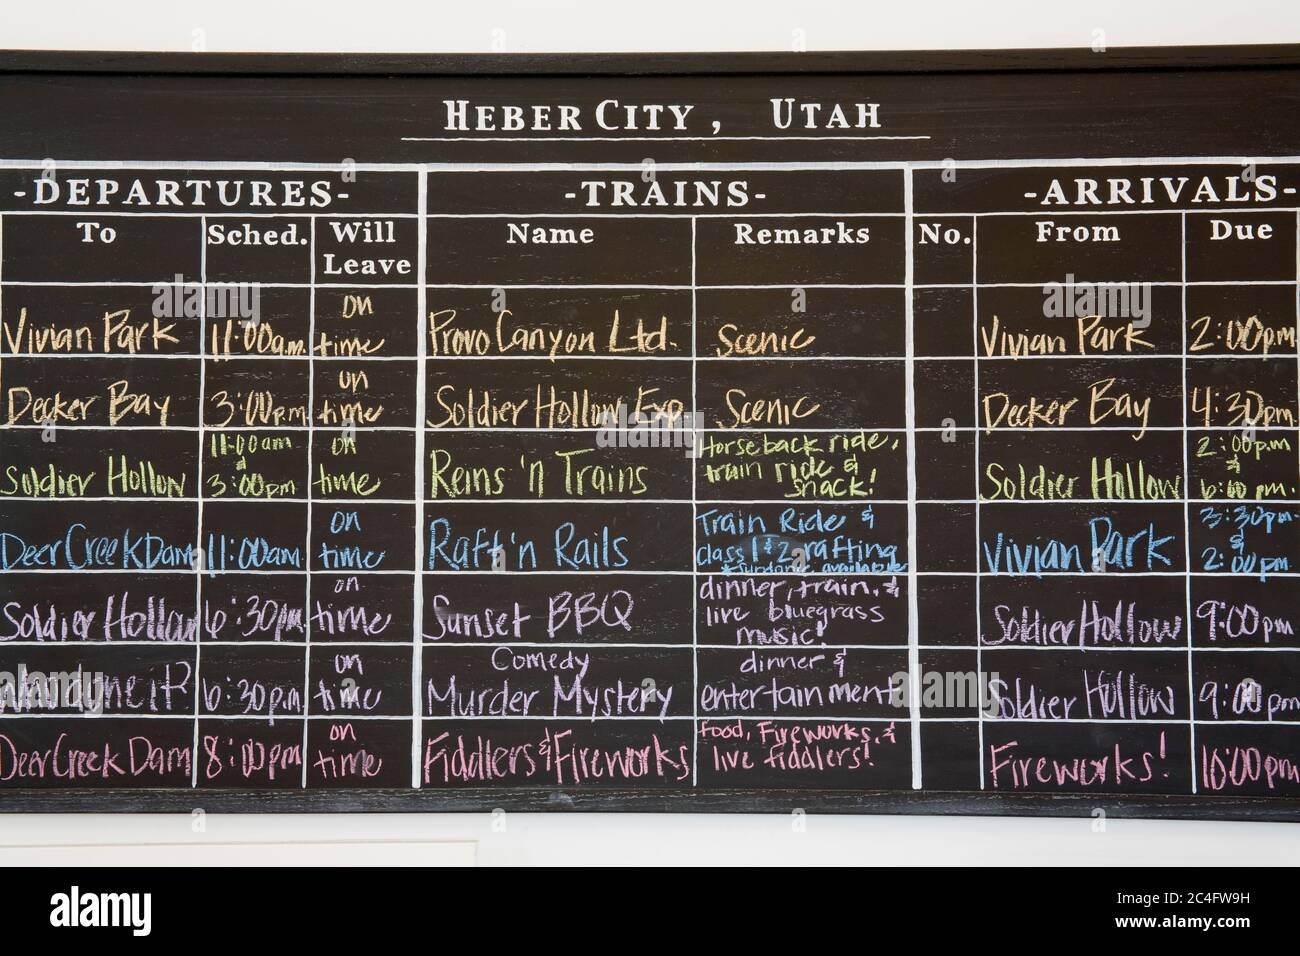 HEBER CITY, UTAH
-DEPARTURES- -TRAINS- -ARRIVALS-
To Sched. Will Leave Name Remarks No. From Due
Vivian Park 11:00a.m. on time Provo Canyon Ltd. Scenic Vivian Park 2:00pm
Decker Bay 3:00p.m on time Soldier Hollow Exp. Scenic Decker Bay 4:30pm
Soldier Hollow 11:00am & 3:00pm on time Reins 'n Trains Horseback ride, train ride & snack! Soldier Hollow 2:00p.m & 6:00 pm.
Deer Creek Dam 11:00am. on time Raft 'n Rails Train Ride & class 1 & 2 rafting *sundance available Vivian Park 3:30pm & 2:00pm
Soldier Hollow 6:30pm on time Sunset BBQ dinner, train, & live bluegrass music! Soldier Hollow 9:00pm
whodone it? 6:30p.m. on time Comedy Murder Mystery dinner & entertainment Soldier Hollow 9:00pm
Deer Creek Dam 8:00pm on time Fiddlers & Fireworks Food, Fireworks, & live fiddlers! Fireworks! 10:00pm
alamy
a
alamy
Image ID: 2C4FW9H
www.alamy.com